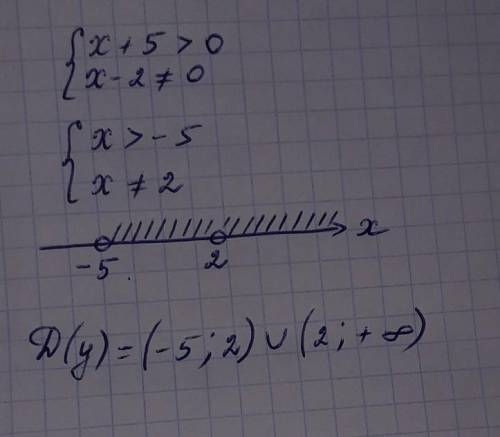 { x + 5 > 0
{ x - 2 ≠ 0
{ x > - 5
{ x ≠ 2
x
-5 2
D(y) = (-5; 2) ∪ (2; +∞)